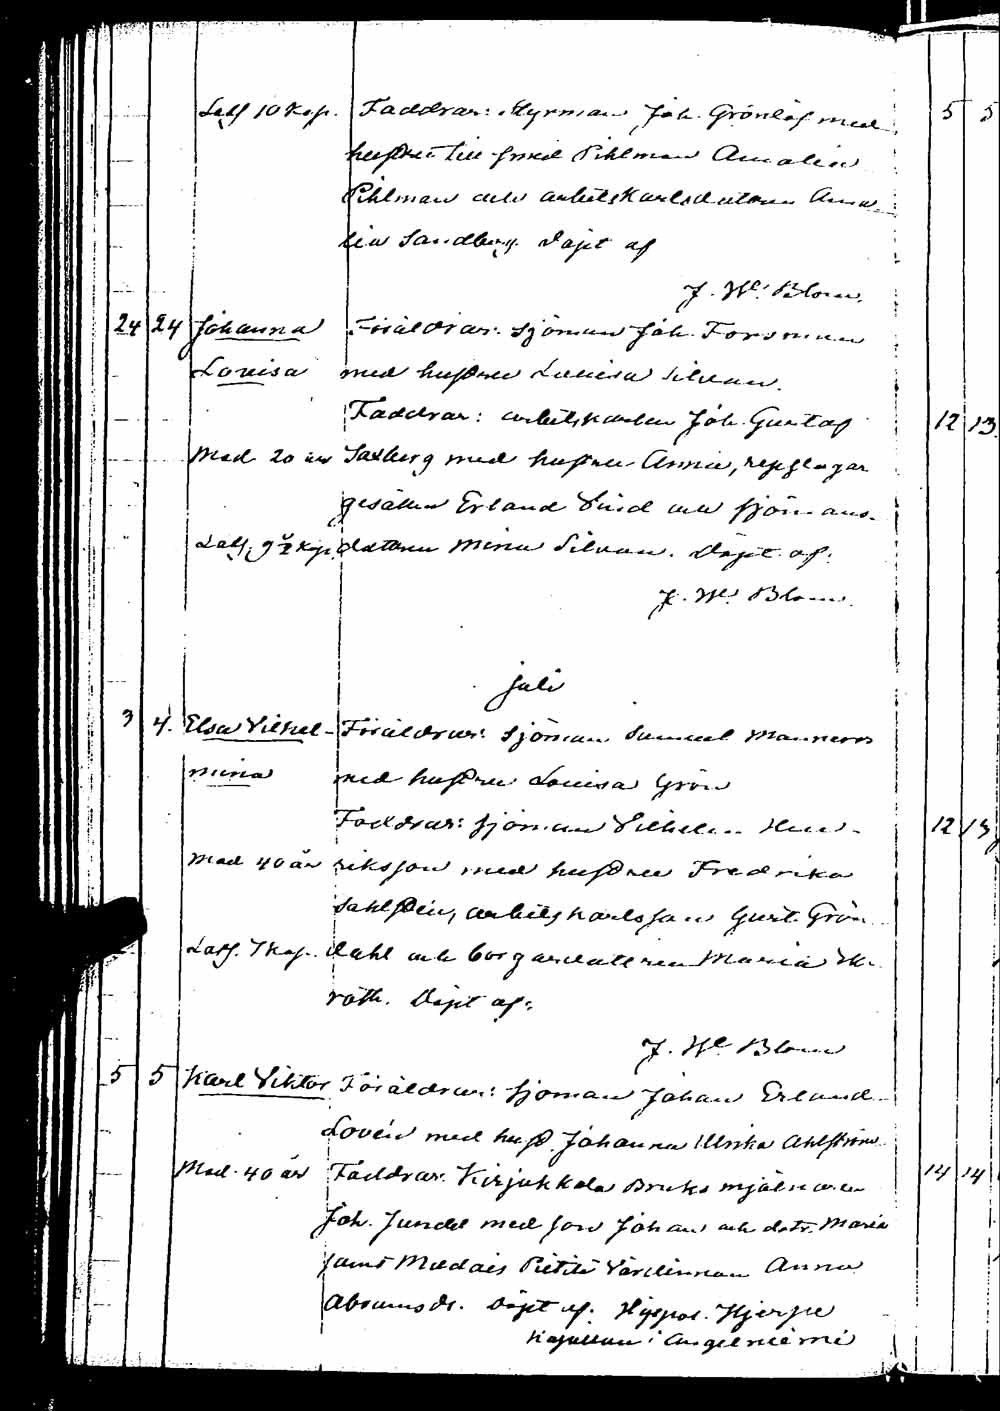 10 Kop. Faddrar: Styrman Joh. Grönlöf med
hustru Pihlman Amalia
Pihlman och arbetskarlsdottren Ama-
lia Sandberg. Döpt af
J. W. Blom.
24 24 Johanna Föräldrar: Sjöman Joh. Forsman
Lovisa med hustru Lovisa Silvan.
Faddrar: arbetskarlen Joh. Gustaf
Mod. 20 år Saxberg med hustru Anna, repslagar
gesällen Erland och sjömans-
9 ½ Kop. dottren Mina Silvan. Döpt af:
J. W. Blom.
juli
3 4. Elsa Vilhel- Föräldrar: Sjöman Samuel Manneros
mina med hustru Lovisa Grön
Faddrar: sjöman Vilhelm Hen-
Mod 40 år riksson med hustru Fredrika
Sahlstén, arbetskarlsson Gust. Grön-
7 Kop. dahl och borgaredottren Maria
roth. Döpt af:
J. W. Blom
5 5 Karl Viktor Föräldrar: sjöman Johan Erland
Lovén med hust. Johanna Ulrika Ahlström
Mod. 40 år Faddrar: Kirjakkala Bruks mjölnaren
Joh. Jundel med son Johan och dotr. Maria
samt Pietilä Värdinnan Anna
Abramsdr. Döpt af: Hjerpe
Kapellan i Angelniemi
5 5
12 13
12 13
14 14